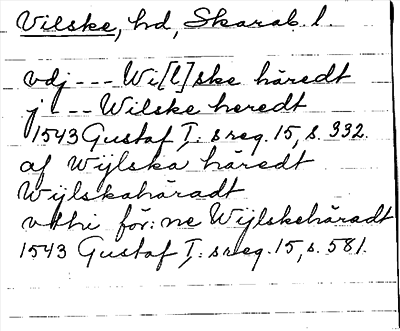 Vilske, hd, Skarab. l.
vdj --- Wi[l]ske häredt
j -- Wilske heredt
1543 Gustaf I: s reg. 15, s. 332.
af Wijlska häredt
Wijlskahäradt
vthi för:ne Wijlskehäradt
1543 Gustaf I: s reg. 15, s. 581.